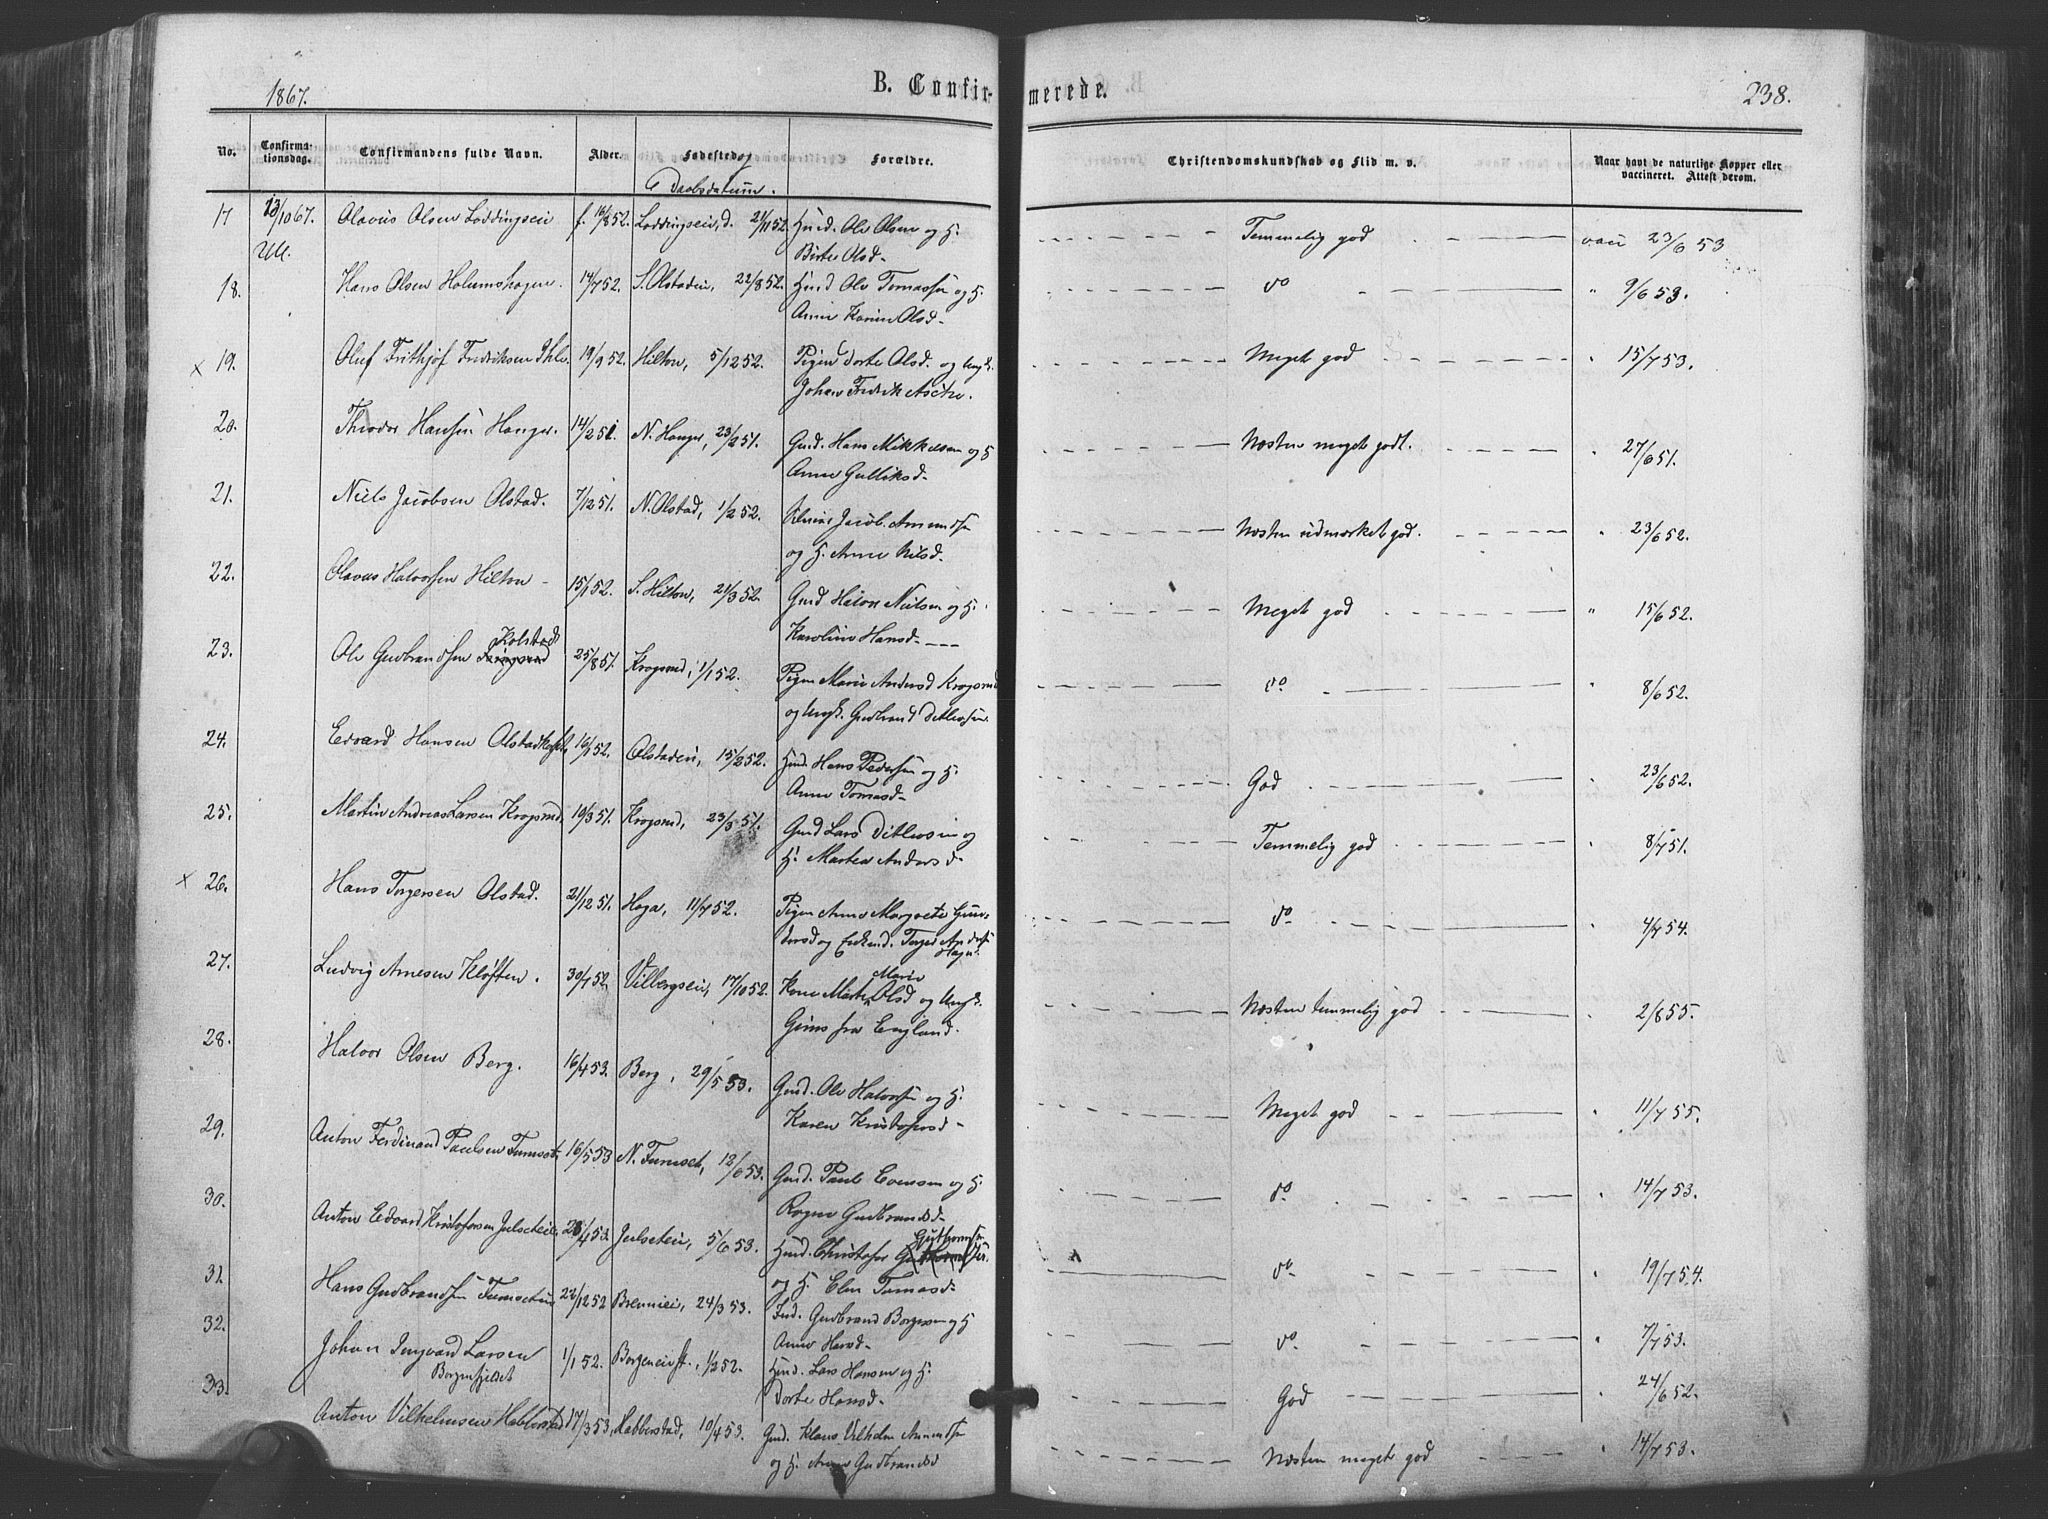 1867.
B. Confir-
merede.
238.
No.
Confirma-
tionsdag.
Confirmandens fulde Navn.
Alder.
Fødested og
Daabsdatum.
Forældre.
Christendomskundskab og Flid m. v.
Naar havt de naturlige Kopper eller
vaccineret. Attest derom.
17 13/10 67. Olavus Olsen Løddingseie f. 16/8 52. Løddingseie, d. 21/11 52. Husd. Ole Olsen og H. Temmelig god vacc 23/6 53
Ull. Birte Olsd.
18. Hans Olsen Holumshagen. 14/7 52. S. Olstadeie, 22/8 52. Husd Ole Tomassen og H. do " 9/6 53.
Anne Karine Olsd.
x 19. Oluf Frithjof Fredriksen Ihle 19/9 52. Hilton, 5/12 52. Pigen Dorte Olsd. og Ungk. Meget god " 15/7 53.
Johan Fredrik
20. Theodor Hansen Hauger. 14/2 51. N. Hauger, 23/2 51. Gmd. Hans Mikkelsen og H Næsten meget godt. " 27/6 51.
Anne Gulliksd.
21. Niels Jacobsen Olstad. 7/12 51. N. Olstad, 1/2 52. Jacob Amundsen Næsten udmærket god. " 23/6 52.
og H. Anne Nilsd.
22. Olavus Halvorsen Hilton 15/1 52. S. Hilton, 21/3 52. Gmd Halvor Nielsen og H. Meget god " 15/6 52.
Karoline Hansd.
Kolstad
23. Ole Gudbrandsen 25/8 51. Krogsrud, 1/1 52. Pigen Marie Andersd Krogsrud do " 8/6 52.
og Ungk. Gudbrand Ditlevsen.
24. Edvard Hansen 16/1 52. Olstadeie, 15/2 52. Husd. Hans Pedersen og H. God 23/6 52.
Anne Tomasd.
25. Martin Andreas Larsen Krogsrud 19/3 51. Krogsrud, 23/3 51. Gmd Lars Ditlevsen og Temmelig god " 8/7 51.
H. Martea Andersd.
x 26. Hans Torgersen Olstad. 21/12 51. Haga, 11/7 52. Pigen Anne Margrete Gun- do " 4/7 54.
dersd og Enkmd. Torger Anders
Haga.
27. Ludvig Arnesen Kløften. 30/7 52. Vilbergseie, 17/10 52. Kone Marte Marie Olsd og Ungk. Næsten temmelig god " 2/8 55.
Gims fra England.
28. Halvor Olsen Berg. 16/4 53. Berg, 29/5 53. Gmd. Ole Halvorsen og H. Meget god " 11/7 55.
Karen Kristofersd.
29. Anton Ferdinand Paulsen Furuset, 16/5 53 N. Furuset, 12/6 53. Gmd. Paul Evensen og H. do " 14/7 53.
Ragne Gudbrandsd.
30. Anton Edvard Kristofersen Julseteie, 28/4 53. Julseteie, 5/6 53. Husd. Christofer Guthormsen do " 19/7 54.
og H. Elen Tomasd.
31. Hans Gudbrandsen Furuseteie 22/12 52 Brennieie, 24/3 53. Gudbrand Borgersen og H do " 7/7 53.
Anne Hansd.
32. Johan Ingvard Larsen 1/1 52. Borgeneie, 1/2 52. Husd. Lars Hansen og H. God 24/6 52.
Borgenfjeldet
Dorte Hansd.
33. Anton Vilhelmsen Habberstad 17/3 53, Habberstad, 10/4 53. Gmd. Klaus Vilhelm Amundsen Næsten meget god " 14/7 53.
og H. Anne Gudbrandsd